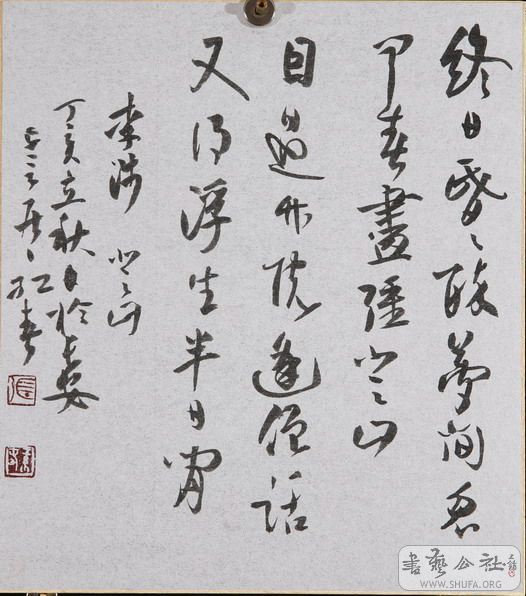 終日昏〻醉夢間忽
闻春盡强登山
因過竹院逢僧話
又得浮生半日闲
李涉 登山
丁亥立秋日於長安
書藝公社
WWW.SHUFA.ORG